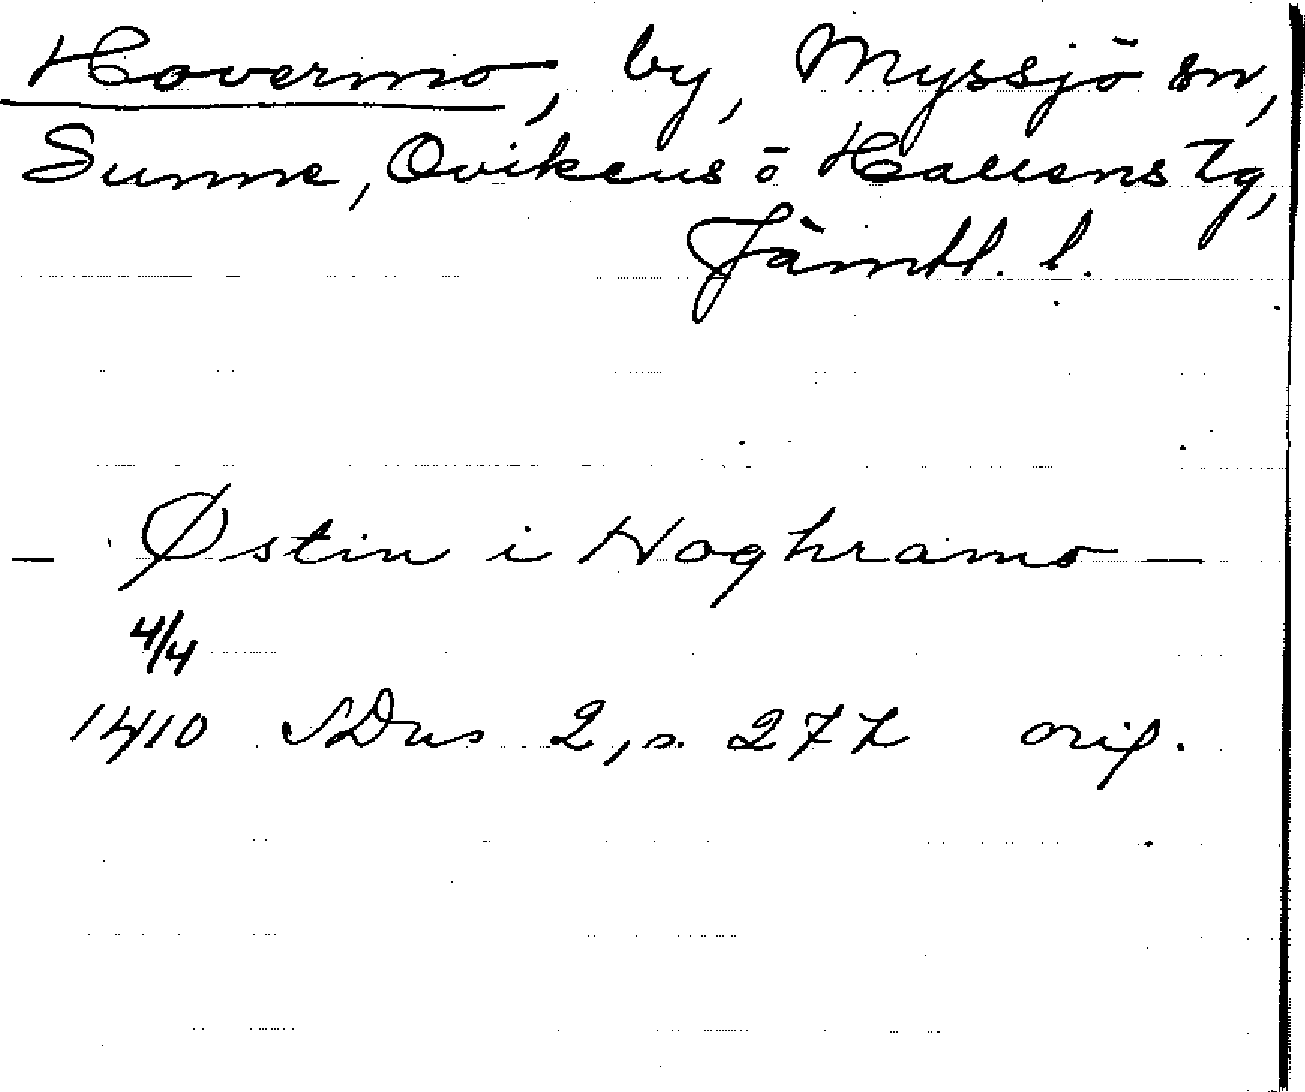 Hovermo, by, Myssjö sn,
Sunne, Ovikens o Hallens tg,
Jämtl. l.
— Østin i Hoghramo —
4/4
1410 SDns 2, s. 272 orig.